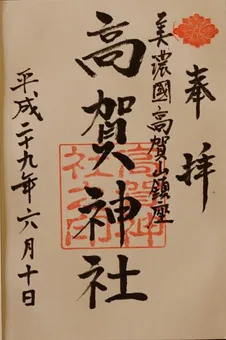 奉拝
美濃國高賀山鎮座
高賀神社
平成二十九年六月十日
高賀神
社之印